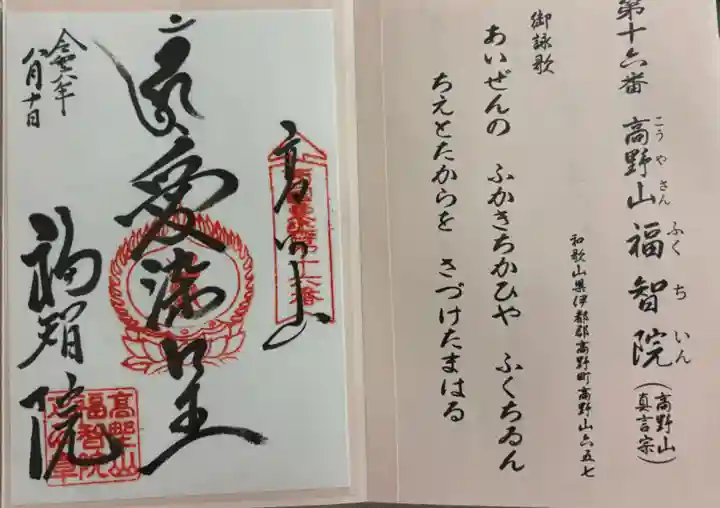 第十六番 高野山 福智院(高野山真言宗)
こうやさん ふくちいん
和歌山県伊都郡高野町高野山六五七
御詠歌
あいぜんの ふかきちかひや ふくちゐん
ちえとたからを さづけたまはる
高野山
第十六番
愛染明王
福智院
高野山
福智院
令和六年
八月十日